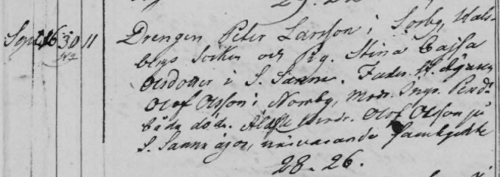 Sept. 16 30 11 Drengen Peter Larsson i Sörby, Wals
bergs Socken och Pig. Stina Cajsa
Olsdotter i S. Sanne. Fader H. Ägaren
Olof Olsson i Norrby, Modr. Inga Pers
döda. Olof Olsson på
S. Sanne ägor, närvarande samtyckte
28-26.